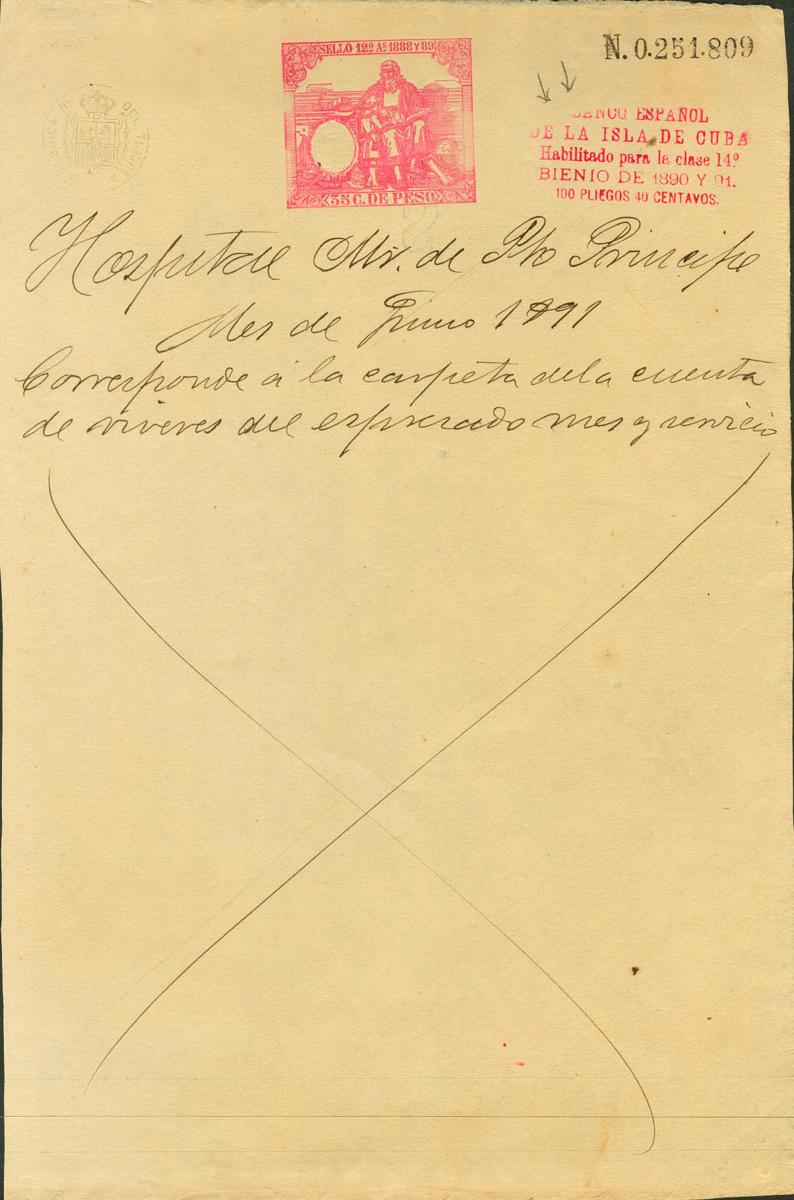 SELLO 12º AS 1888 Y 89
35 C. DE PESO
N. 0.251.809
BANCO ESPAÑOL
DE LA ISLA DE CUBA
Habilitado para la clase 14º
BIENIO DE 1890 Y 91.
100 PLIEGOS 40 CENTAVOS.
Hospital Mr. de Pto Principe
Mes de Junio 1891
Corresponde á la carpeta de la cuenta
de viveres del espresado mes y servicio